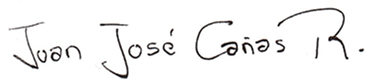 Juan José Cañas R.